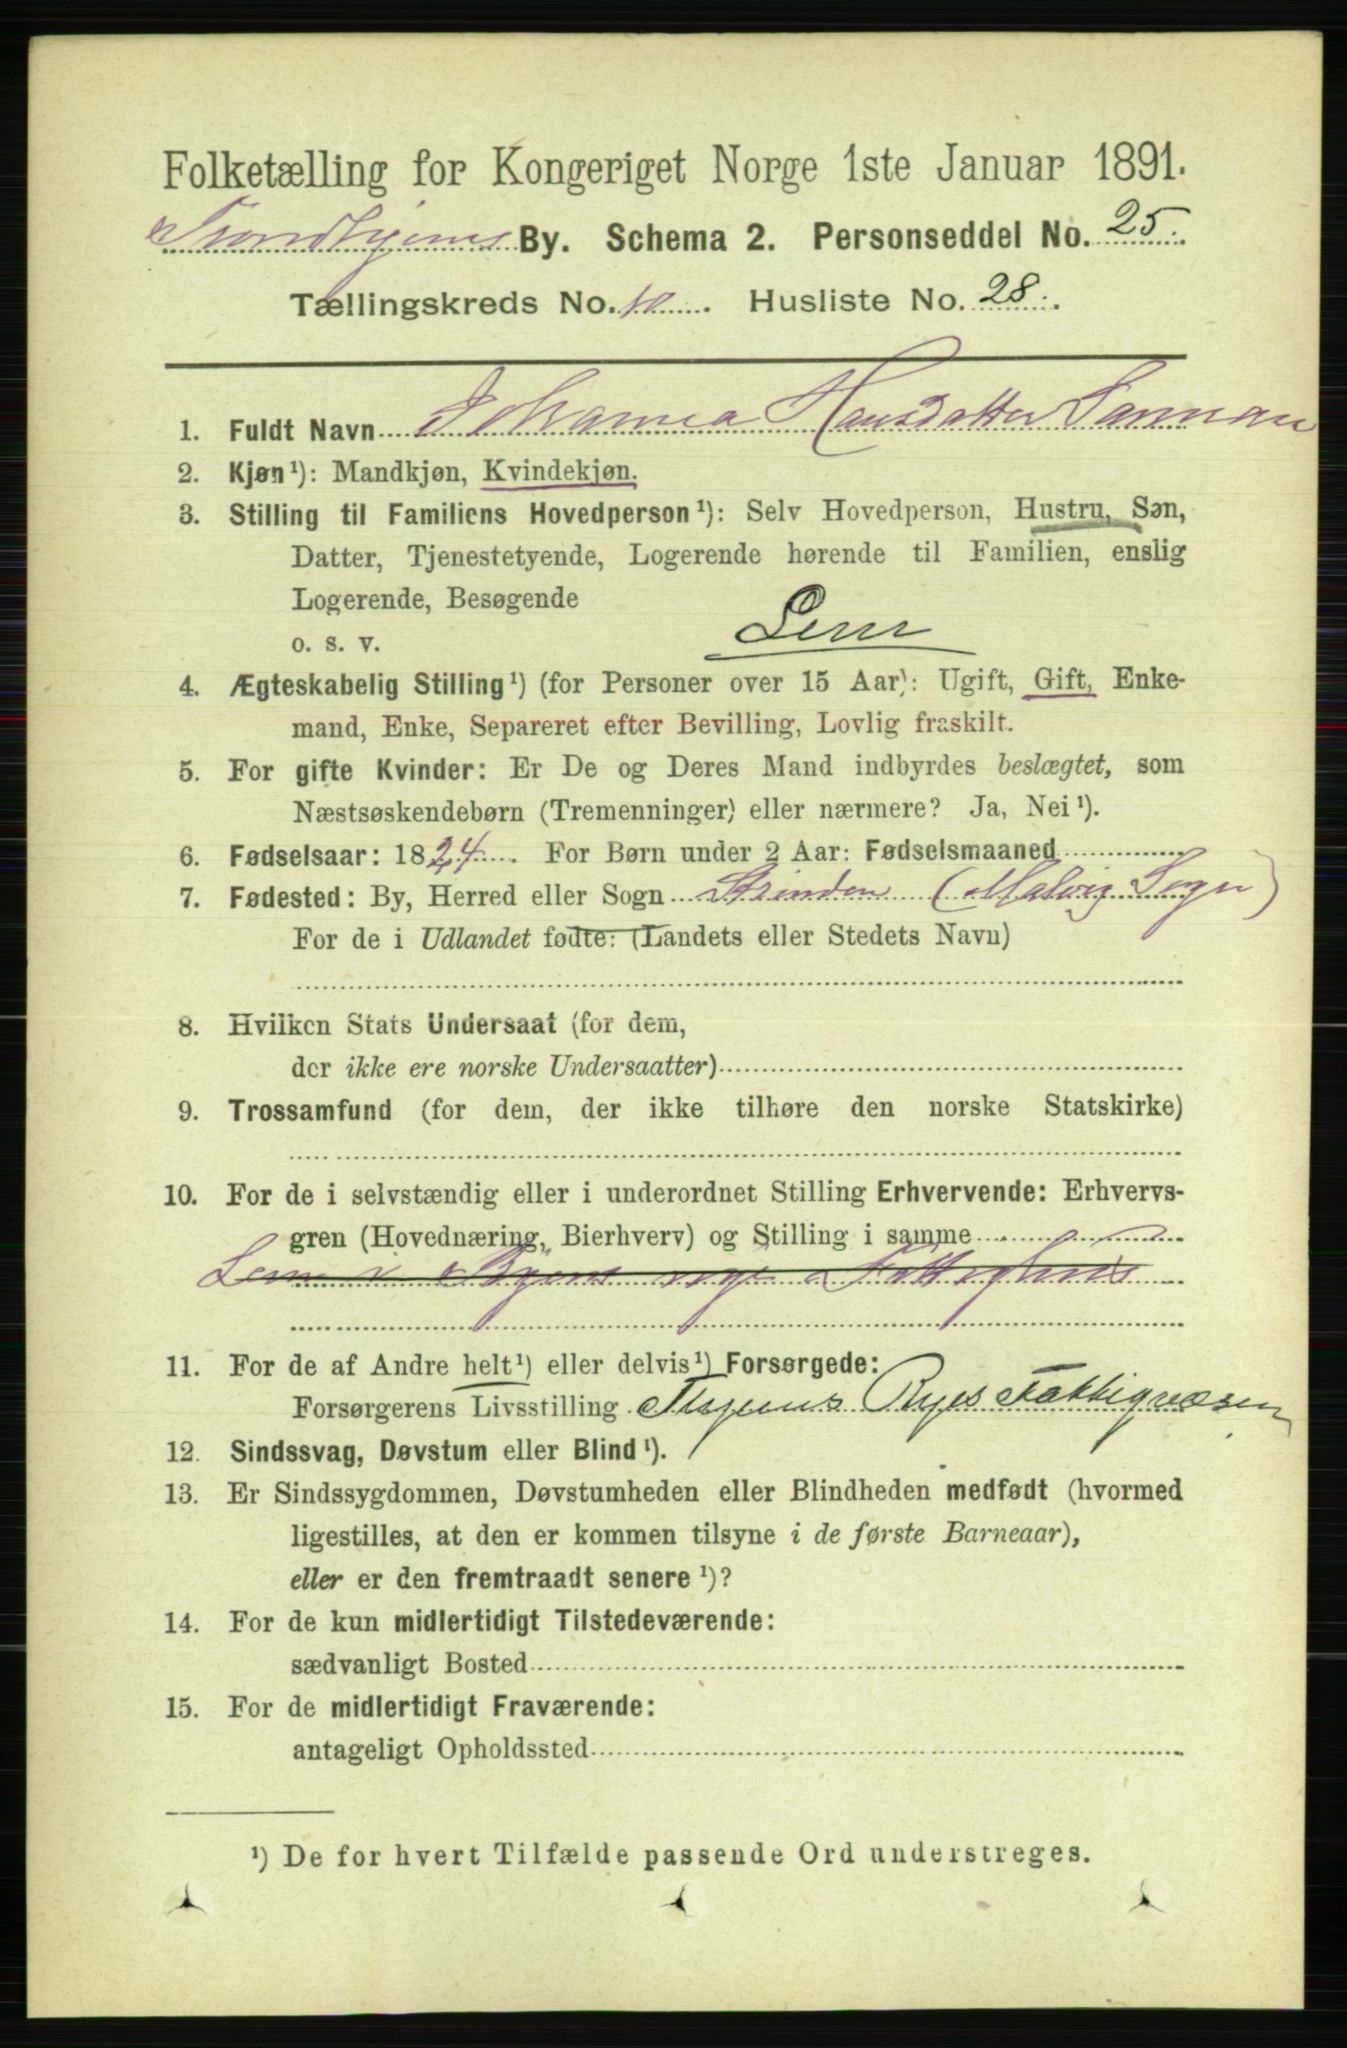 Folketælling for Kongeriget Norge 1ste Januar 1891.
Trondhjems By. Schema 2. Personseddel No. 25.
Tællingskreds No. 10. Husliste No. 28.
1. Fuldt Navn Johanna Hansdatter
2. Kjøn¹): Mandkjøn, Kvindekjøn.
3. Stilling til Familiens Hovedperson¹): Selv Hovedperson, Hustru, Søn,
Datter, Tjenestetyende, Logerende hørende til Familien, enslig
Logerende, Besøgende
o. s. v. Lem
4. Ægteskabelig Stilling¹) (for Personer over 15 Aar): Ugift, Gift, Enke-
mand, Enke, Separeret efter Bevilling, Lovlig fraskilt.
5. For gifte Kvinder: Er De og Deres Mand indbyrdes beslægtet, som
Næstsøskendebørn (Tremenninger) eller nærmere? Ja, Nei¹).
6. Fødselsaar: 1824. For Børn under 2 Aar: Fødselsmaaned
7. Fødested: By, Herred eller Sogn Strinden (Malvig Sogn)
For de i Udlandet fødte: (Landets eller Stedets Navn)
8. Hvilken Stats Undersaat (for dem,
der ikke ere norske Undersaatter)
9. Trossamfund (for dem, der ikke tilhøre den norske Statskirke)
10. For de i selvstændig eller i underordnet Stilling Erhvervende: Erhvervs-
gren (Hovednæring, Bierhverv) og Stilling i samme
Lem i Byens nye Fattighus
11. For de af Andre helt¹) eller delvis¹) Forsørgede:
Forsørgerens Livsstilling Thjems Byes Fattigvæsen
12. Sindssvag, Døvstum eller Blind¹).
13. Er Sindssygdommen, Døvstumheden eller Blindheden medfødt (hvormed
ligestilles, at den er kommen tilsyne i de første Barneaar),
eller er den fremtraadt senere¹)?
14. For de kun midlertidigt Tilstedeværende:
sædvanligt Bosted
15. For de midlertidigt Fraværende:
antageligt Opholdssted
¹) De for hvert Tilfælde passende Ord understreges.